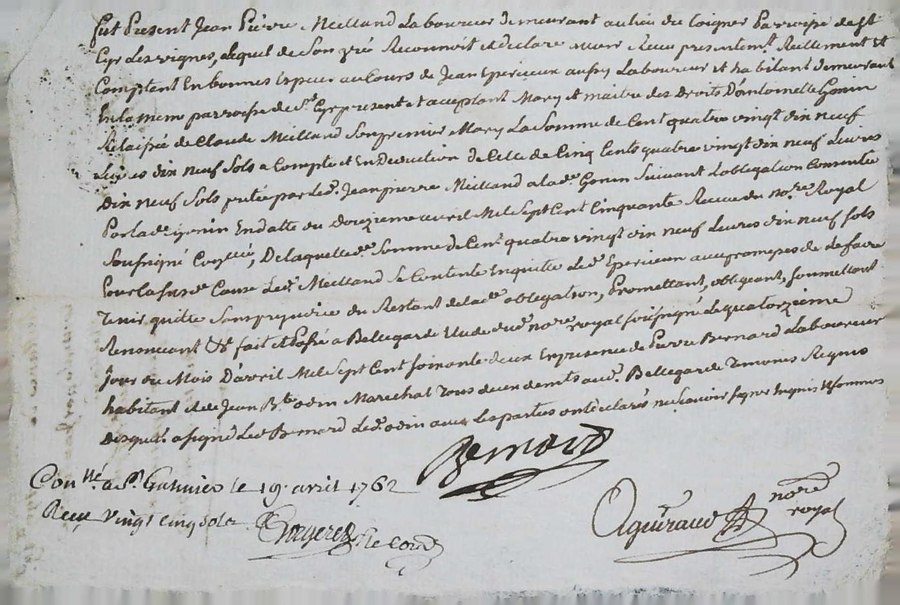 fut Present Jean Pierre Meilland Laboureur demeurant au lieu du Coigner Parroisse de St
Cyr les vignes, lequel de son gré Reconnoit et declare avoir Reçu presentemt. Réellement et
Comptant En bonnes Especes au Cours de Jean Epercieux aussy Laboureur et habitant demeurant
En la meme parroisse de St. Cyr present et acceptant Mary et maitre des Droits D'antoinette Gonin
Relaissée de Claude Meilland Son premier Mary La Somme de Cent quatre vingt dix neuf
Livres dix neuf Sols a Compte et En Deduction de Celle de Cinq Cents quatre vingt dix neuf Livres
dix neuf Sols prétée par led. Jean pierre Meilland a lade. Gonin Suivant L'obligation Consentie
Par lade. gonin En datte du Douzieme avril Mil Sept Cent Cinquante Recue du nore. Royal
Soussigné , De laquelle de. Somme de Cent quatre vingt dix neuf Livres dix neuf Sols
Pour la susde. Cause led. Meilland Se Contente En quitte led. Epercieux avec promesse de le faire
Tenir quitte Sans prejudice du Restant de lade. obligation, Promettant, obligeant, Soumettant
Renonçant &c. fait et Passé a Bellegarde Etude du nore. royal soussigné le quatorzieme
Jour du Mois D'avril Mil Sept Cent soixante deux En presence de Pierre Bernard Laboureur
habitant et de Jean Bte. odin Marechal Tous deux demts. aud. Bellegarde Temoins Requis
Desquels a signé led. Bernard led. odin avec les parties ont déclarés ne Scavoir signer Enquis et sommés
Bernard
Conllé. a St. Galmier le 19. avril 1762
Reçu vingt cinq sols
nore
royal